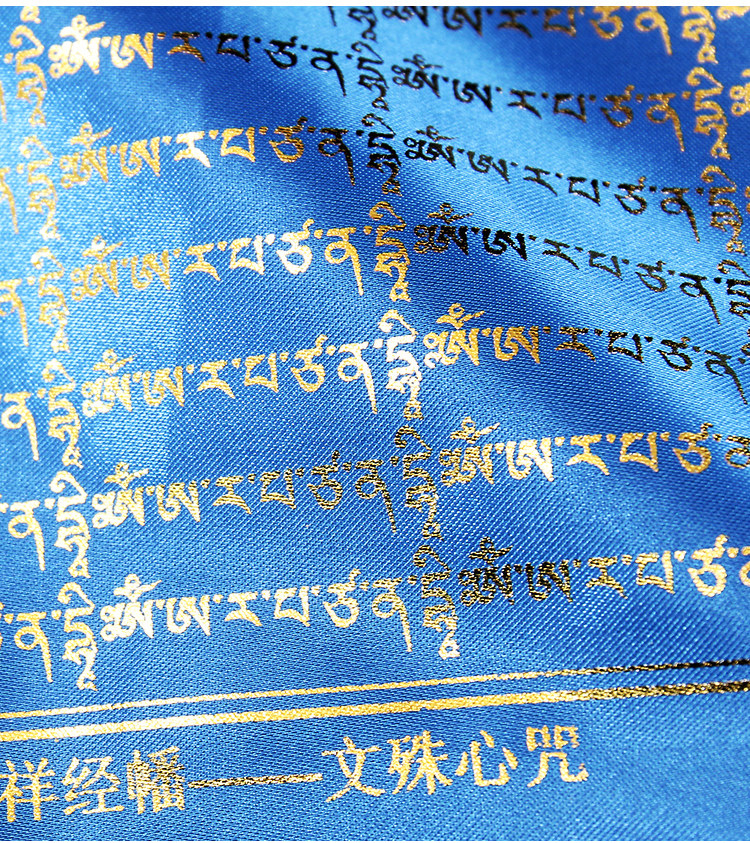 ཨོཾ་ཨ་ར་པ་ཙ་ན་དྷཱི
དྷཱི ཨོཾ་ཨ་ར་པ་ཙ་ན་དྷཱི ཨོཾ་ཨ་ར་པ་ཙ་ན་དྷཱི
དྷཱི ཨོཾ་ཨ་ར་པ་ཙ་ན་དྷཱི ཨོཾ་ཨ་ར་པ་ཙ་ན་དྷཱི
ན་དྷཱི ཨོཾ་ཨ་ར་པ་ཙ་ན་དྷཱི ཨོཾ་ཨ་ར་པ་ཙ་ན་དྷཱི
ན་དྷཱི ཨོཾ་ཨ་ར་པ་ཙ་ན་དྷཱི ཨོཾ་ཨ་ར་པ་ཙ་ན
ན་དྷཱི ཨོཾ་ཨ་ར་པ་ཙ་ན་དྷཱི ཨོཾ་ཨ་ར་པ་ཙ
ན་དྷཱི ཨོཾ་ཨ་ར་པ་ཙ་ན་དྷཱི ཨོཾ་ཨ་ར་པ་ཙ
祥经幡——文殊心咒